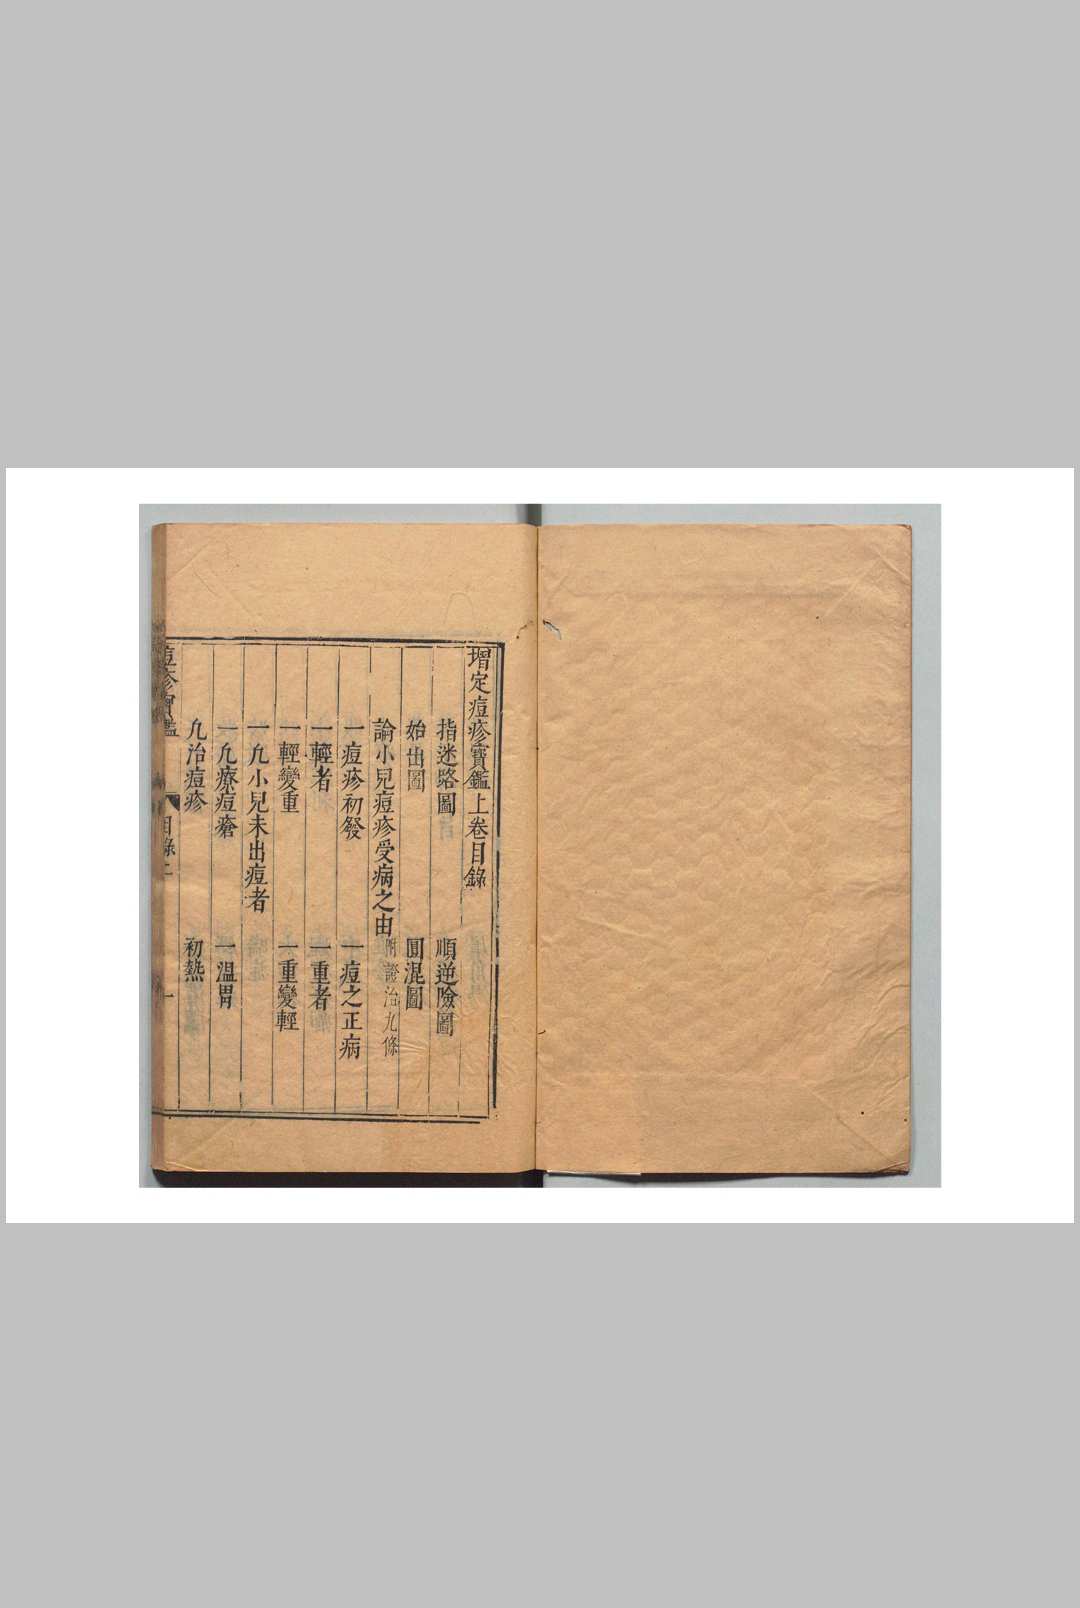 增定痘疹寶鑑上卷目錄
指迷略圖 順逆險圖
始出圖 圓混圖
論小兒痘疹受病之由 附證治九條
一痘疹初發 一痘之正病
一輕者 一重者
一輕變重 一重變輕
一凢小兒未出痘者
一凢療痘瘡 一溫胃
凢治痘疹 初熱
痘疹寶鑑 目錄 一